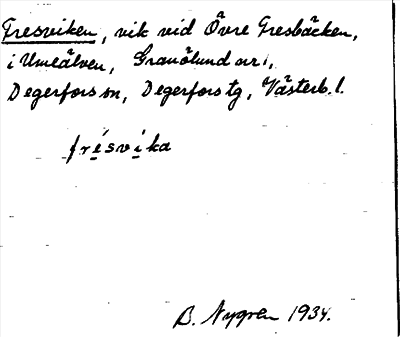 Fresviken, vik vid Övre Fresbäcken,
i Umeälven, Granölund nr 1,
Degerfors sn, Degerfors tg, Västerb. l.
frésvìka
B. Nygren 1934.